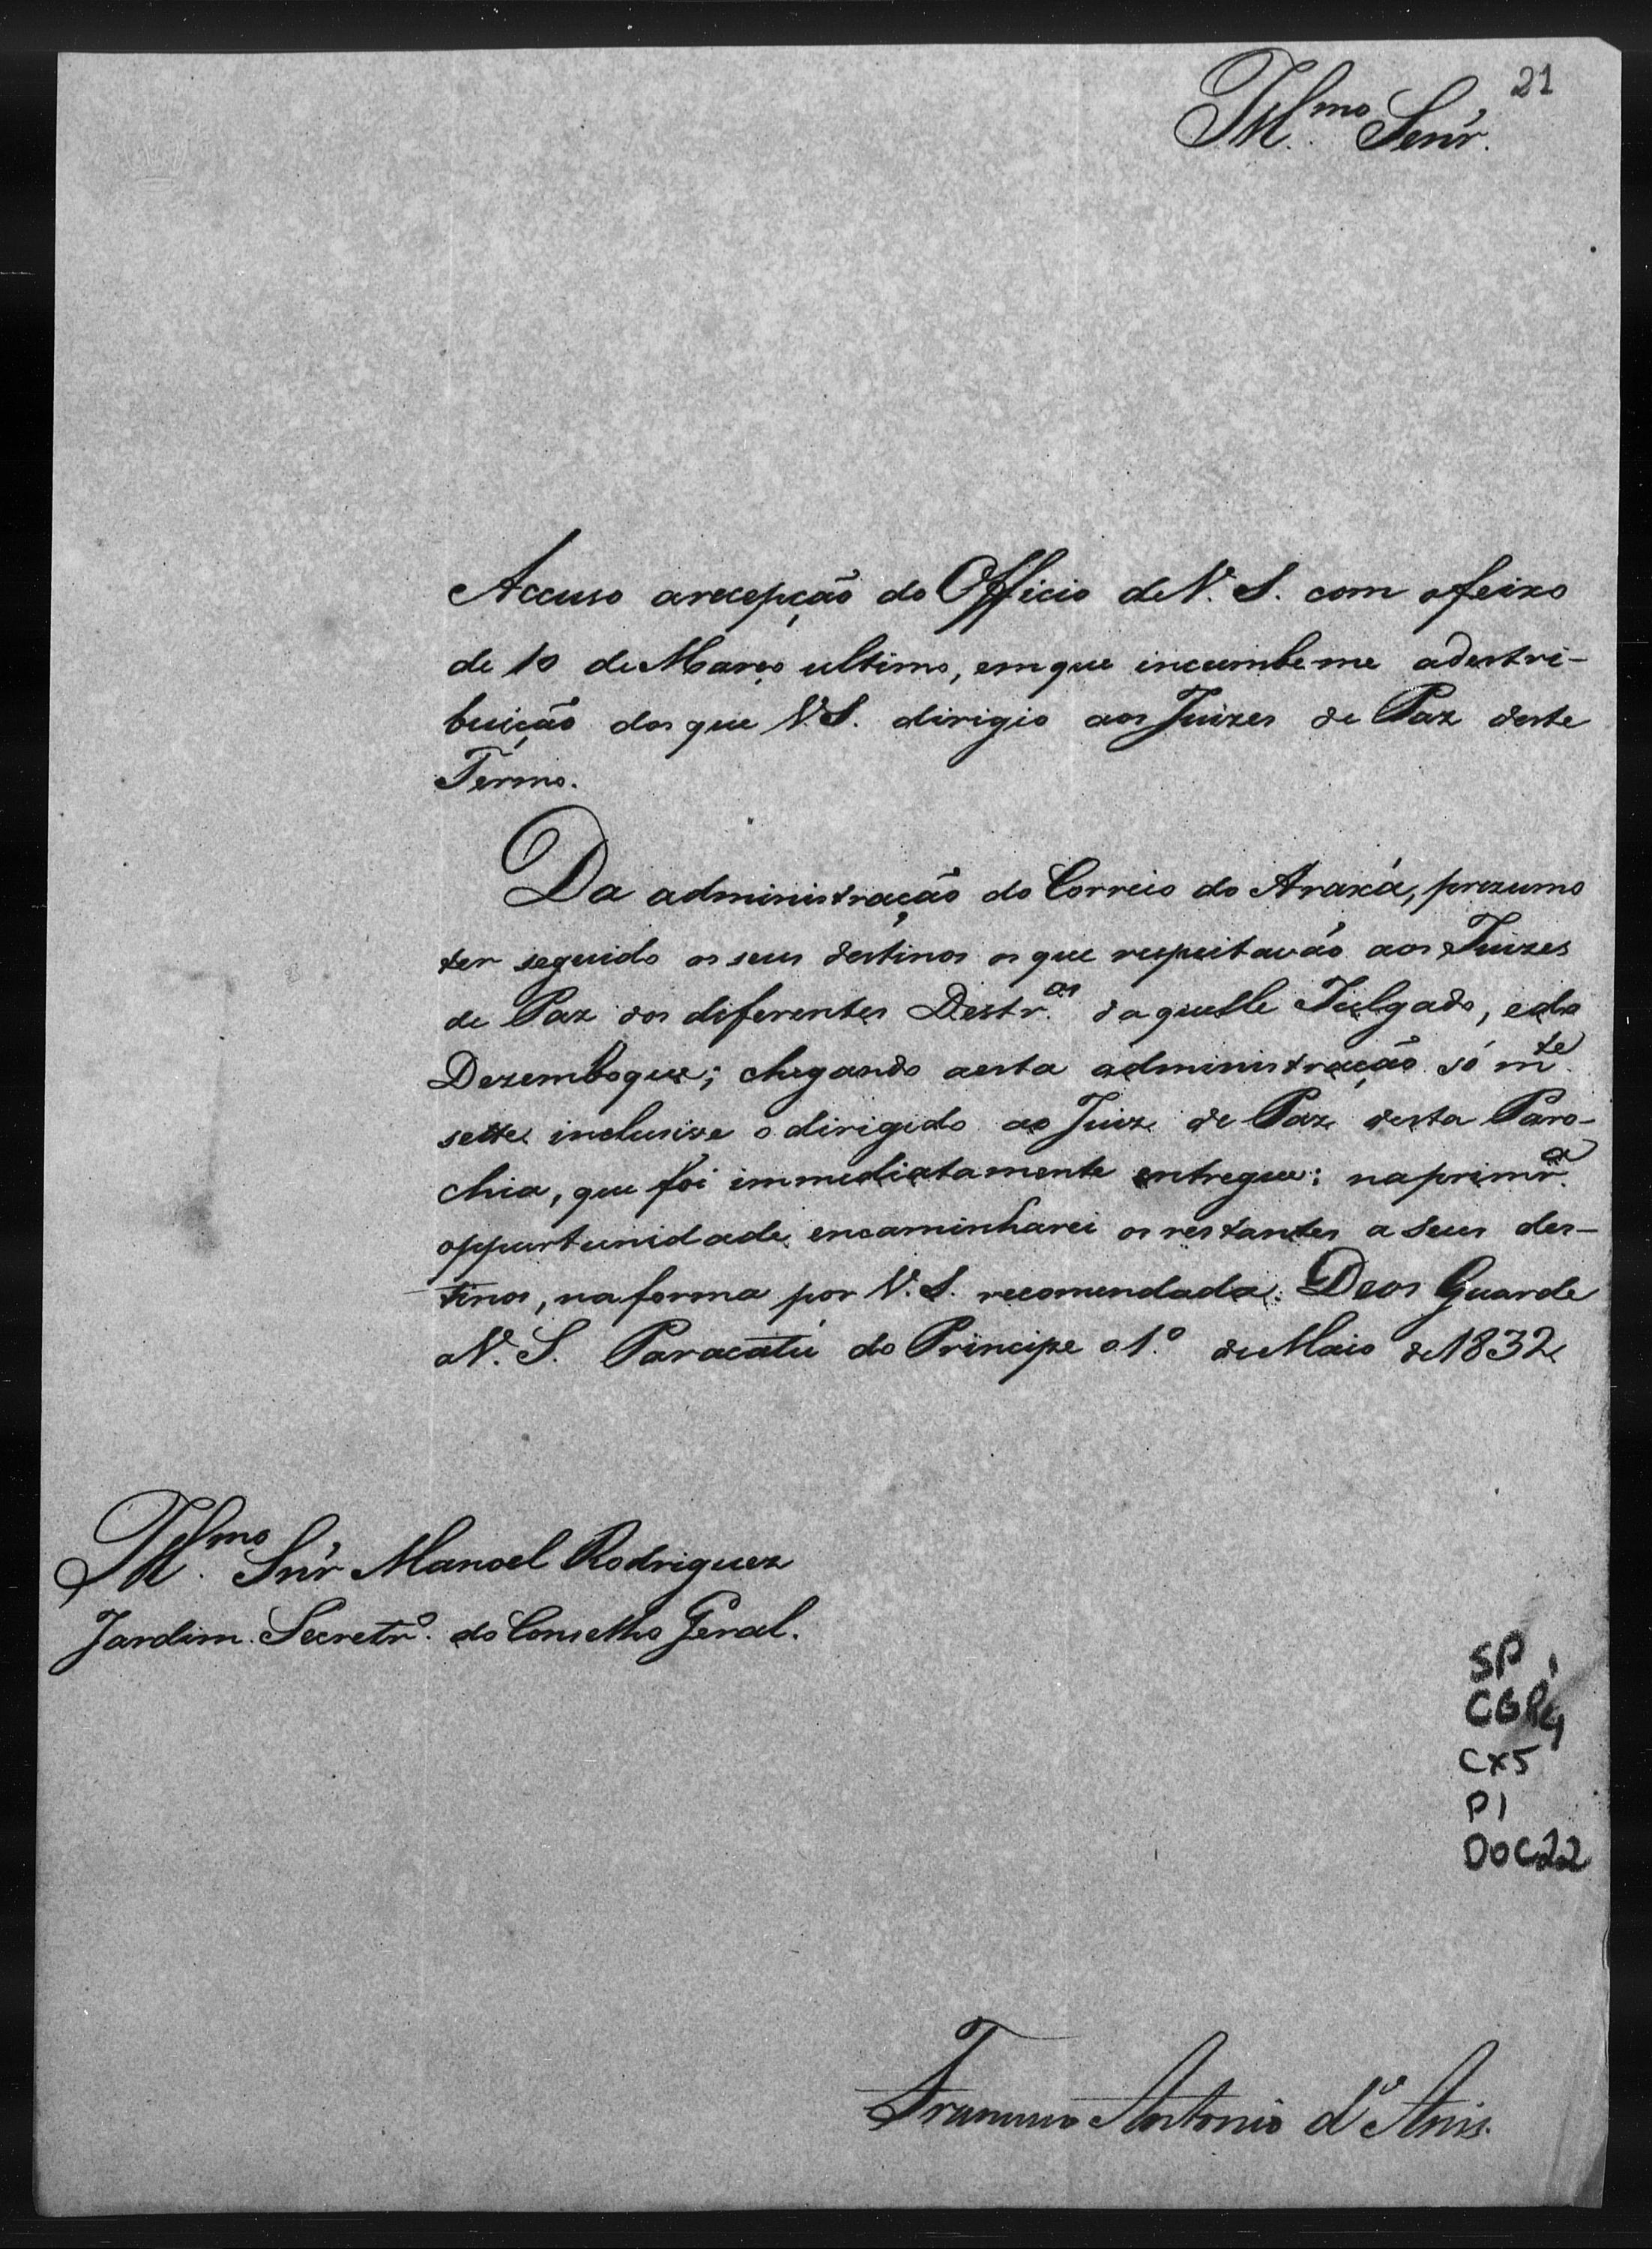 21
Ill.mo Senr.
Accuso arecepção do Officio de V. S. com ofeixo
de 10 de Março ultimo, emque incumbeme adestri-
buição dos que V.S. dirigio aos Juizes de Paz deste
Termo.
Da administração do Correio do Araxá, prezumo
ter seguido os seus destinos os que respeitavão aos Juizes
de Paz dos diferentes Destr.os daquelle Julgado, edo
Dezemboque; chegando aesta administração só m.te
sette inclusive o dirigido ao Juiz de Paz desta Paro-
chia, que foi immediatamente entregue; naprimr.a
oppurtunidade encaminharei os restantes a seus des-
tinos, naforma por V. S. recomendada. Deos Guarde
aV. S. Paracatú do Principe o 1.º de Maio de 1832
Ill.mo Snr Manoel Rodriguez
Jardim. Secretr.º do Conselho Geral.
SP
CGP4
CX5
P1
DOC22
Antonio d'Assis.